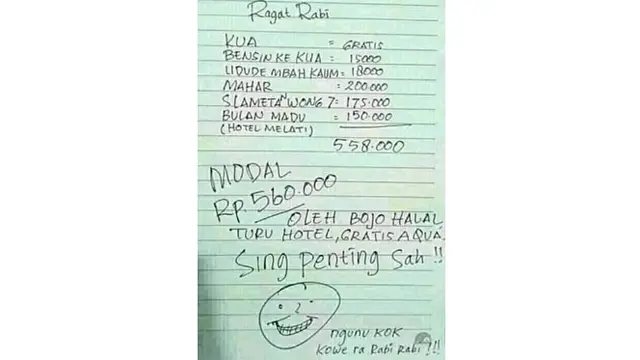 Ragat Rabi
KUA = GRATIS
BENSIN KE KUA = 15000
UDUDE MBAH KAUM = 18000
MAHAR = 200.000
SLAMETAN WONG 7 = 175.000
BULAN MADU = 150.000
(HOTEL MELATI)
558.000
MODAL
RP. 560.000
OLEH BOJO HALAL
TURU HOTEL, GRATIS AQUA.
Sing penting Sah !!
ngunu KOK
KOWE ra Rabi Rabi !!!